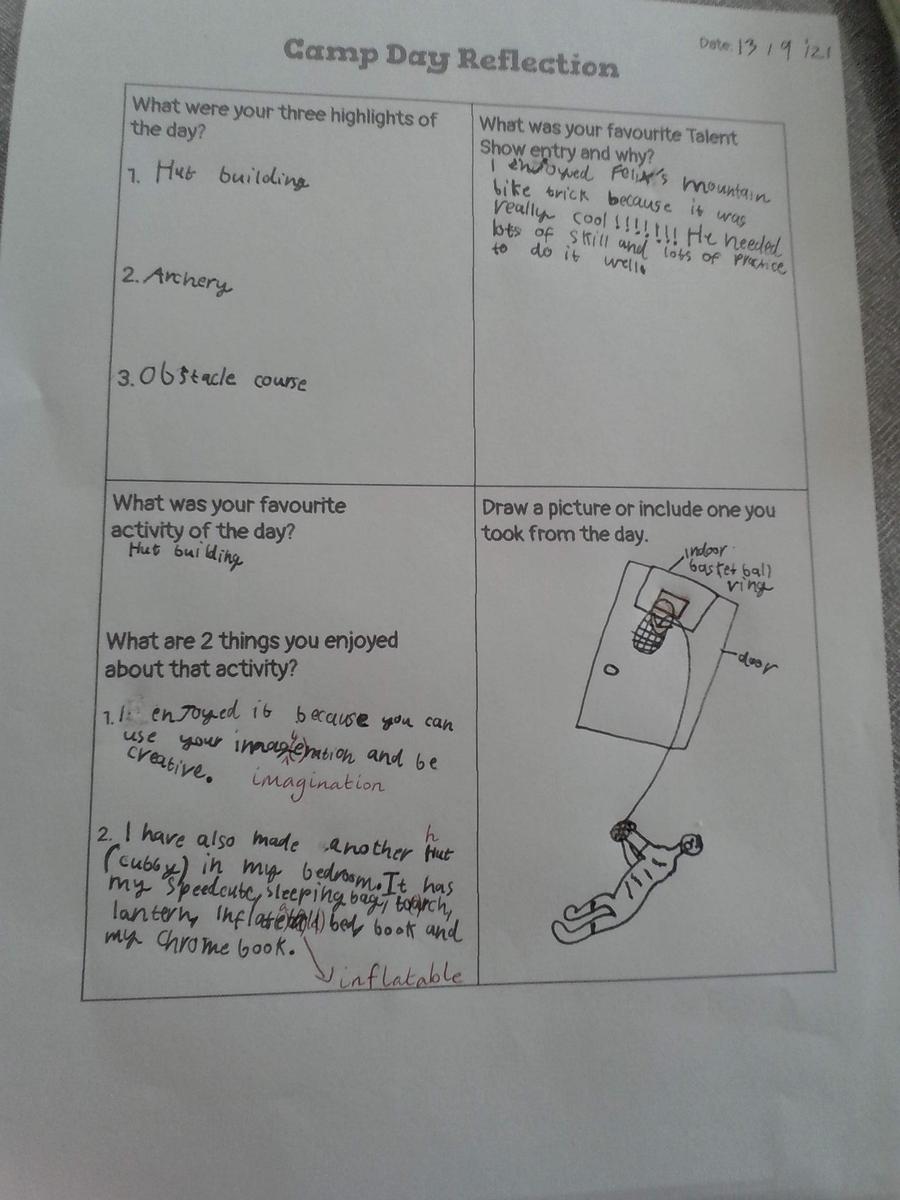 Camp Day Reflection
Date: 13 / 9 / 21
What were your three highlights of
the day?
1. Hut building
2. Archery
3. Obstacle course
What was your favourite Talent
Show entry and why?
I enjoyed Felix's mountain
bike trick because it was
really cool!!!!!!!! He needed
lots of skill and lots of practice
to do it well.
What was your favourite
activity of the day?
Hut building
What are 2 things you enjoyed
about that activity?
1. I enjoyed it because you can
use your and be
creative.
imagination
2. I have also made another Hut
h
(cubby) in my bedroom. It has
my Speedcutc, sleeping bag, torch,
lantern, bed book and
my chrome book.
inflatable
Draw a picture or include one you
took from the day.
indoor
basketball
ring
door